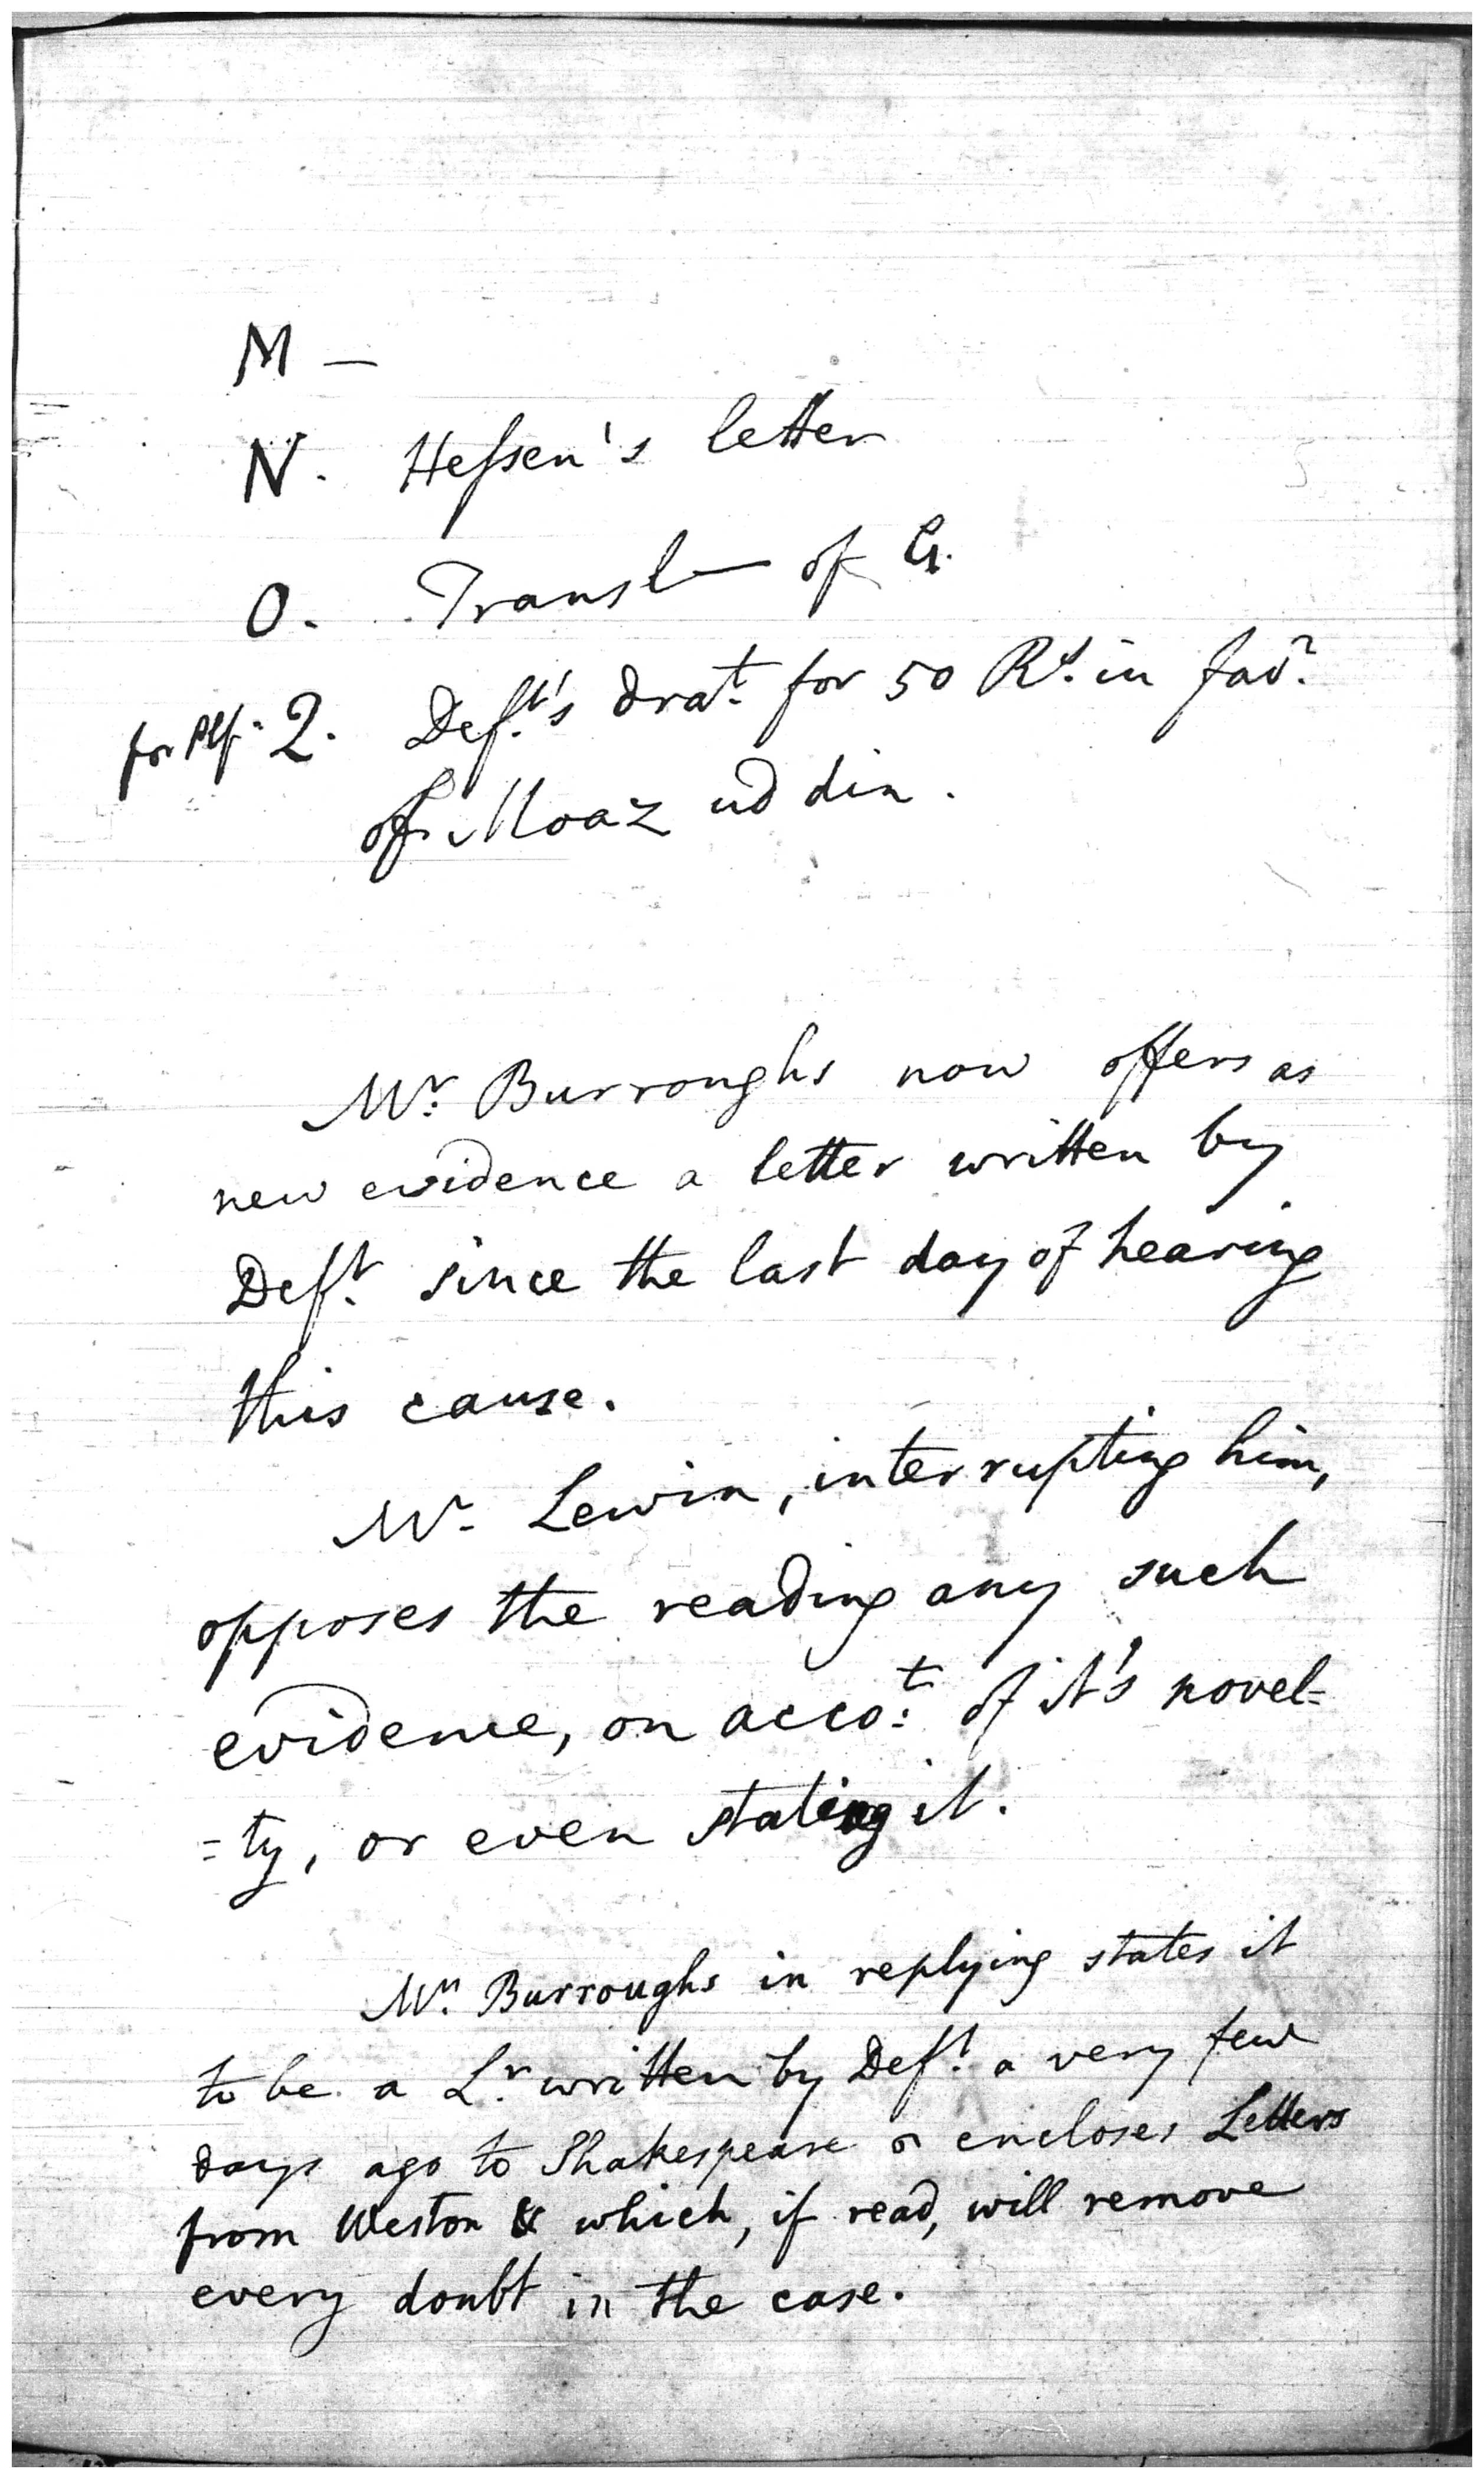 M —
N. Hessen's letter
O. Transl— of G.
for Plf. 2. Deft.'s drat. for 50 Rs. in favr.
of Moaz ud din.
Mr. Burroughs now offers as
new evidence a letter written by
Deft. since the last day of hearing
this cause.
Mr. Lewin, interrupting him,
opposes the reading any such
evidence, on accot. of it's novel=
=ty, or even stating it.
Mr. Burroughs in replying states it
to be a Lr. written by Deft. a very few
days ago to Shakespeare & encloses Letters
from Weston & which, if read, will remove
every doubt in the case.